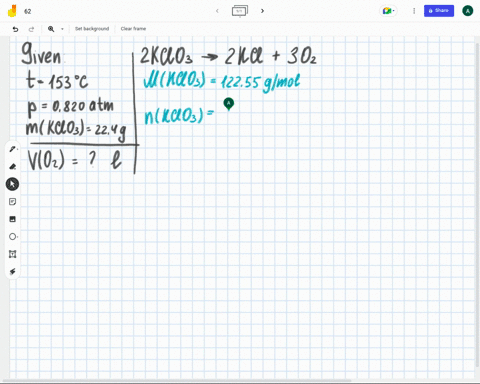 62
Share
A
Set background
Clear frame
Given
t = 153°C
p = 0,820 atm
m(KClO₃) = 22.4 g
V(O₂) = ? l
2KClO₃ → 2KCl + 3O₂
M(KClO₃) = 122.55 g/mol
n(KClO₃) =
A